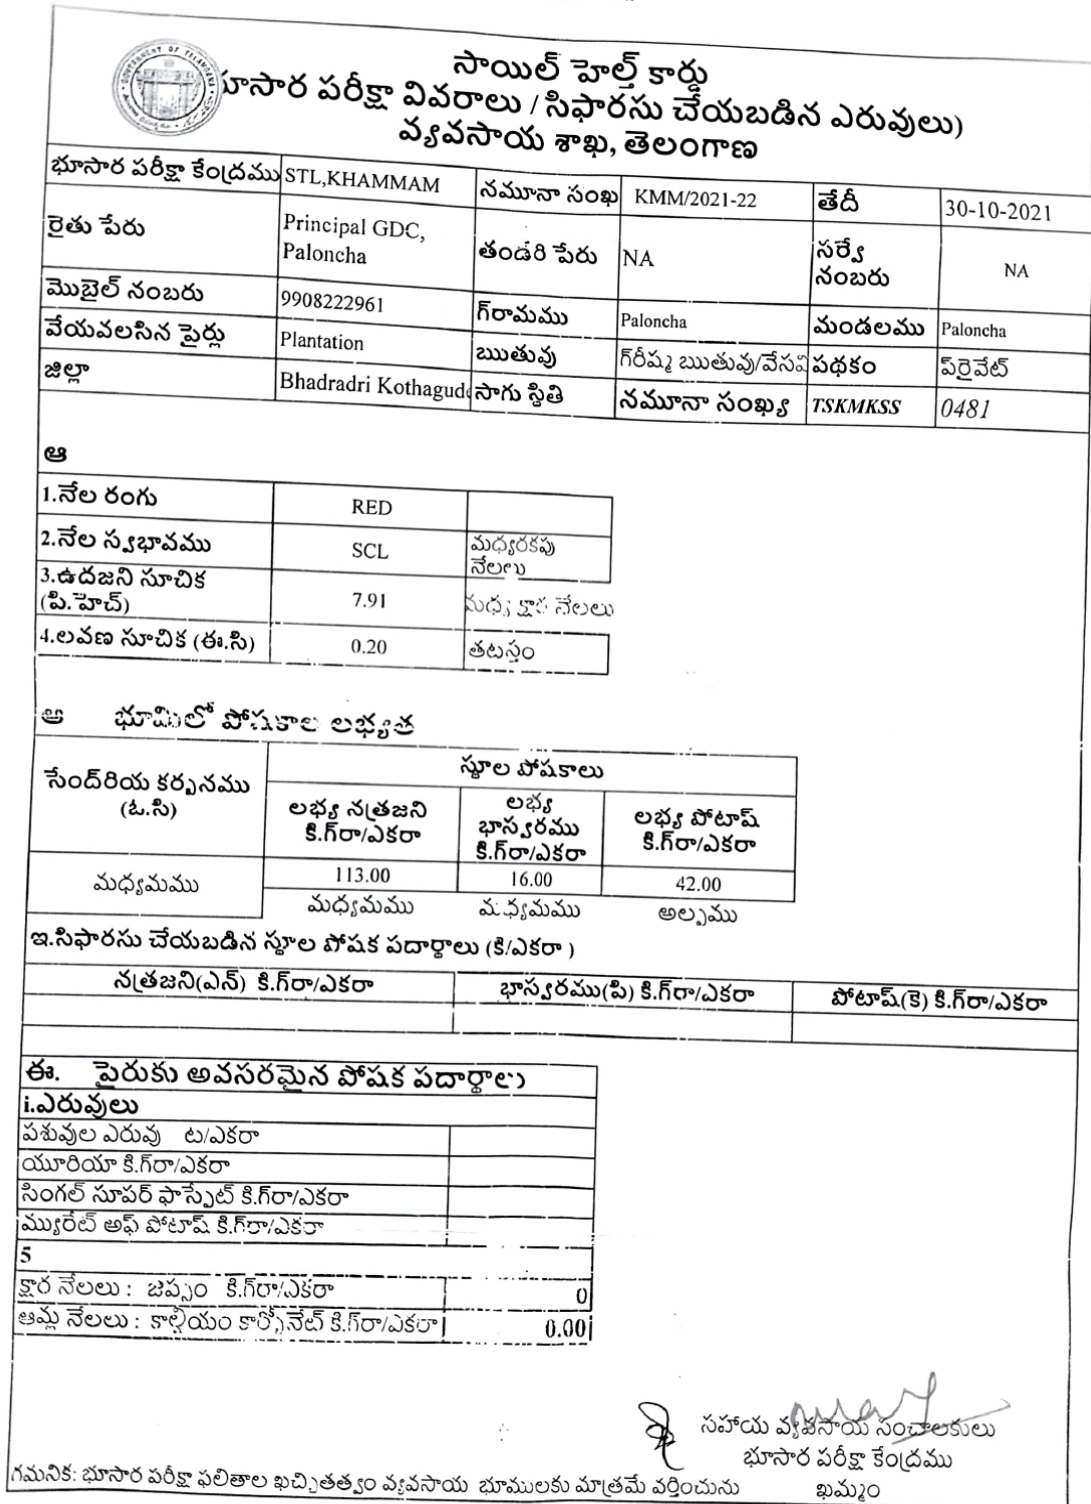 సాయిల్ హెల్త్ కార్డు
భూసార పరీక్షా వివరాలు / సిఫారసు చేయబడిన ఎరువులు)
వ్యవసాయ శాఖ, తెలంగాణ
భూసార పరీక్షా కేంద్రము STL,KHAMMAM నమూనా సంఖ KMM/2021-22 తేదీ 30-10-2021
రైతు పేరు Principal GDC, Paloncha తండ్రి పేరు NA సర్వే నంబరు NA
మొబైల్ నంబరు 9908222961 గ్రామము Paloncha మండలము Paloncha
వేయవలసిన పైర్లు Plantation ఋతువు గ్రీష్మ ఋతువు/వేసవి పథకం ప్రైవేట్
జిల్లా Bhadradri Kothagude సాగు స్థితి నమూనా సంఖ్య TSKMKSS 0481
ఆ
1.నేల రంగు RED
2.నేల స్వభావము SCL మధ్యరకపు నేలలు
3.ఉదజని సూచిక (పి.హెచ్) 7.91 మధ్య క్షార నేలలు
4.లవణ సూచిక (ఈ.సి) 0.20 తటస్తం
ఆ భూమిలో పోషకాల లభ్యత
సేంద్రియ కర్బనము (ఓ.సి) స్థూల పోషకాలు
లభ్య నత్రజని కి.గ్రా/ఎకరా లభ్య భాస్వరము కి.గ్రా/ఎకరా లభ్య పోటాష్ కి.గ్రా/ఎకరా
మధ్యమము 113.00 16.00 42.00
మధ్యమము మధ్యమము అల్పము
ఇ.సిఫారసు చేయబడిన స్థూల పోషక పదార్థాలు (కి/ఎకరా )
నత్రజని(ఎన్) కి.గ్రా/ఎకరా భాస్వరము(పి) కి.గ్రా/ఎకరా పోటాష్(కె) కి.గ్రా/ఎకరా
ఈ. పైరుకు అవసరమైన పోషక పదార్థాలు
i.ఎరువులు
పశువుల ఎరువు ట/ఎకరా
యూరియా కి.గ్రా/ఎకరా
సింగల్ సూపర్ ఫాస్ఫేట్ కి.గ్రా/ఎకరా
మ్యురేట్ అఫ్ పోటాష్ కి.గ్రా/ఎకరా
5
క్షార నేలలు : జిప్సం కి.గ్రా/ఎకరా 0
ఆమ్ల నేలలు : కాల్షియం కార్బోనేట్ కి.గ్రా/ఎకరా 0.00
సహాయ వ్యవసాయ సంచాలకులు
భూసార పరీక్షా కేంద్రము
ఖమ్మం
గమనిక: భూసార పరీక్షా ఫలితాల ఖచ్చితత్వం వ్యవసాయ భూములకు మాత్రమే వర్తించును